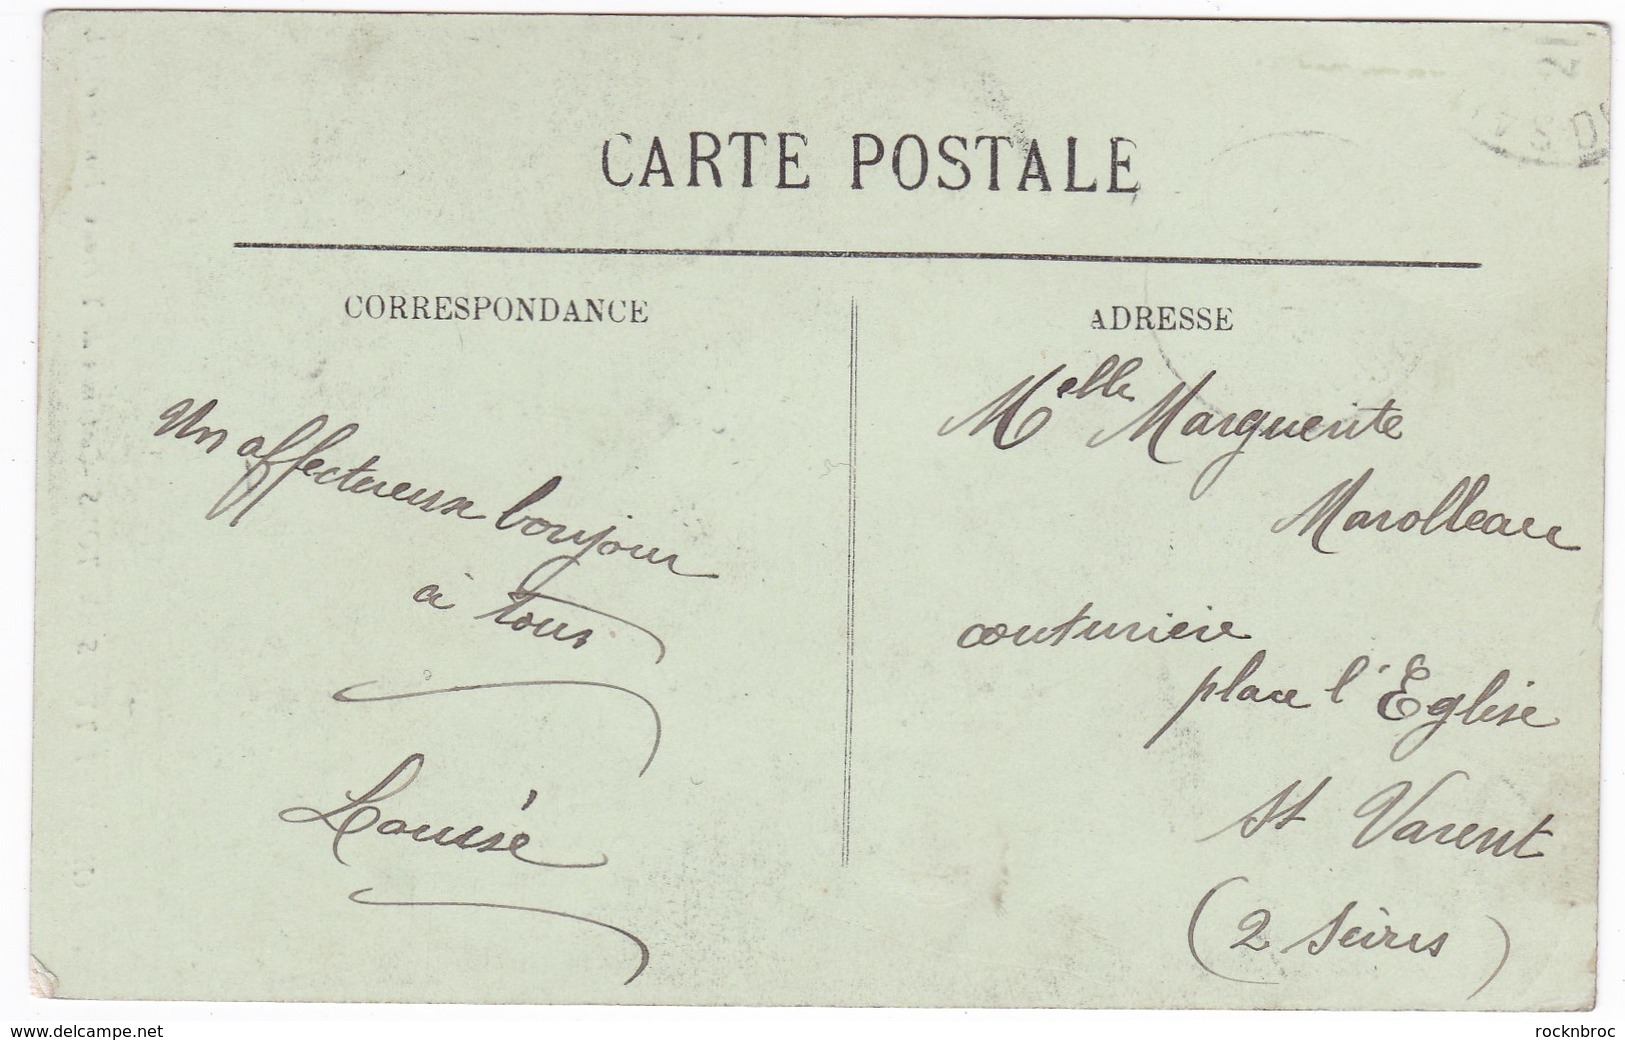 CARTE POSTALE
CORRESPONDANCE
Un affectueux bonjour
à tous
Louise
ADRESSE
Melle Marguerite
Marolleau
couturière
place l'Eglise
St Varent
(2 Sèvres)
www.delcampe.net
rocknbroc